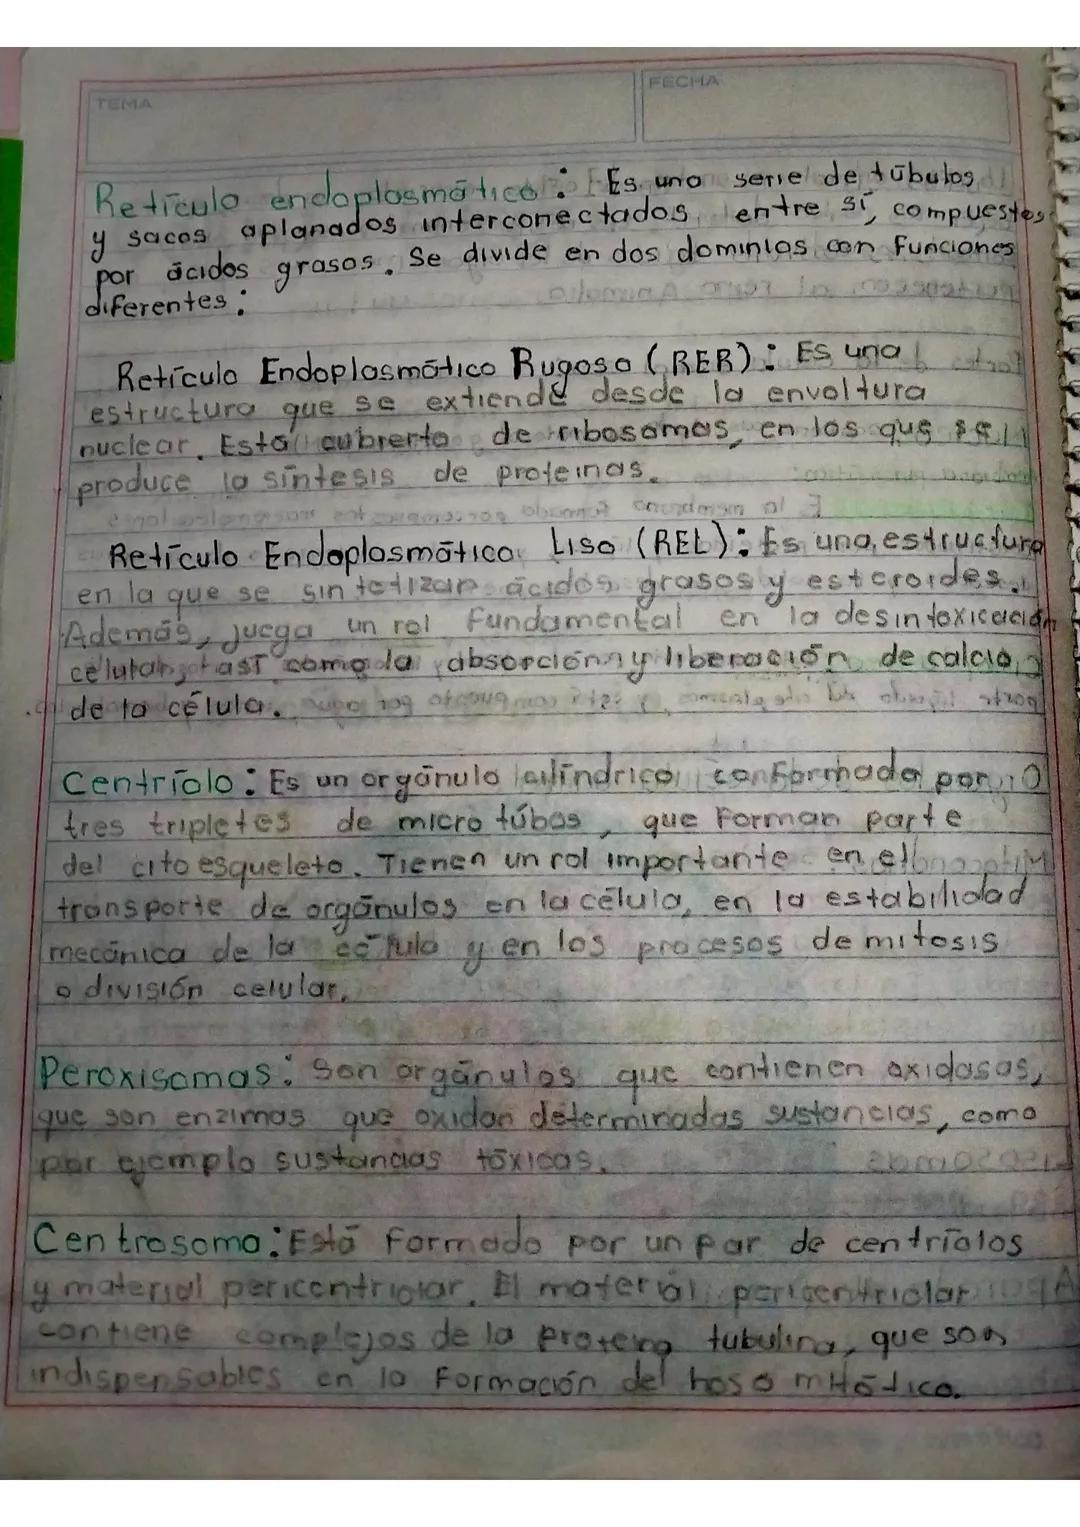 TEMA
FECHA
Retículo endoplasmático: Es una serie de túbulos
y sacos aplanados interconectados entre sí, compuestos
por ácidos grasos. Se divide en dos dominios con funciones
diferentes:
Retículo Endoplasmático Rugoso (RER): Es una
estructura que se extiende desde la envoltura
nuclear. Está cubierto de ribosomas, en los que se
produce la síntesis de proteinas.
Retículo Endoplasmático Liso (REL): Es una estructura
en la que se sintetizan ácidos grasos y esteroides.
Además, juega un rol fundamental en la desintoxicación
celular, así como la absorción y liberación de calcio
de la célula.
Centríolo: Es un orgánulo cilíndrico conformado por
tres tripletes de micro túbos, que forman parte
del citoesqueleto. Tienen un rol importante en el
transporte de orgánulos en la célula, en la estabilidad
mecánica de la célula y en los procesos de mitosis
o división celular.
Peroxisomas: Son orgánulos que contienen oxidasas,
que son enzimas que oxidan determinadas sustancias, como
por ejemplo sustancias tóxicas.
Centrosoma: Está formado por un par de centríolos
y material pericentriolar. El material pericentriolar
contiene complejos de la proteína tubulina, que son
indispensables en la formación del hoso mitótico.